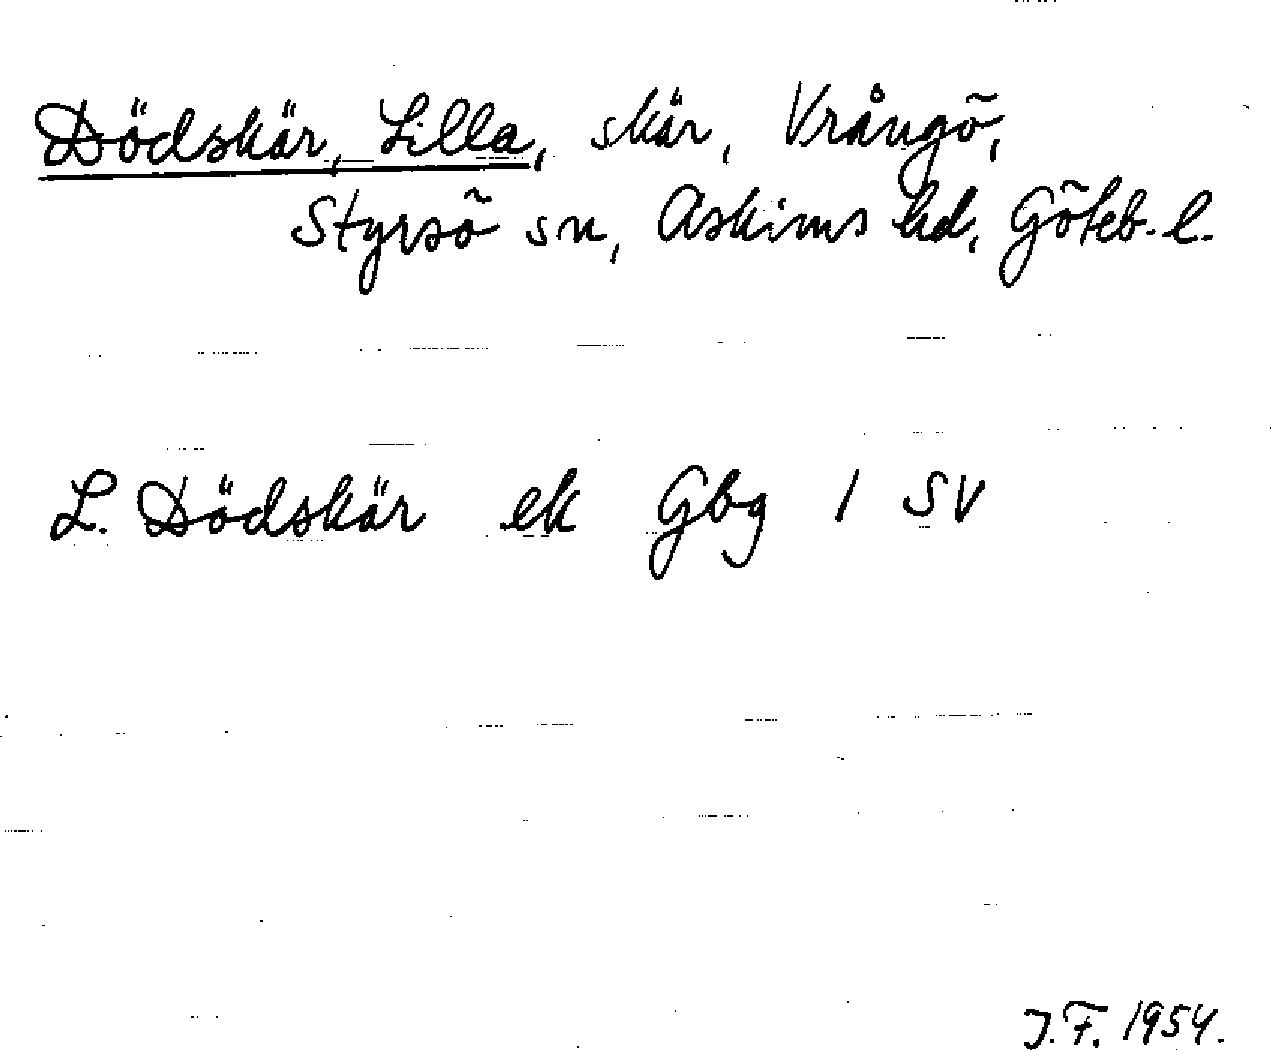 Dödskär, Lilla, skär, Vrångö,
Styrsö sn, Askims hd, Göteb. l.
L. Dödskär ek Gbg 1 SV
J.F. 1954.